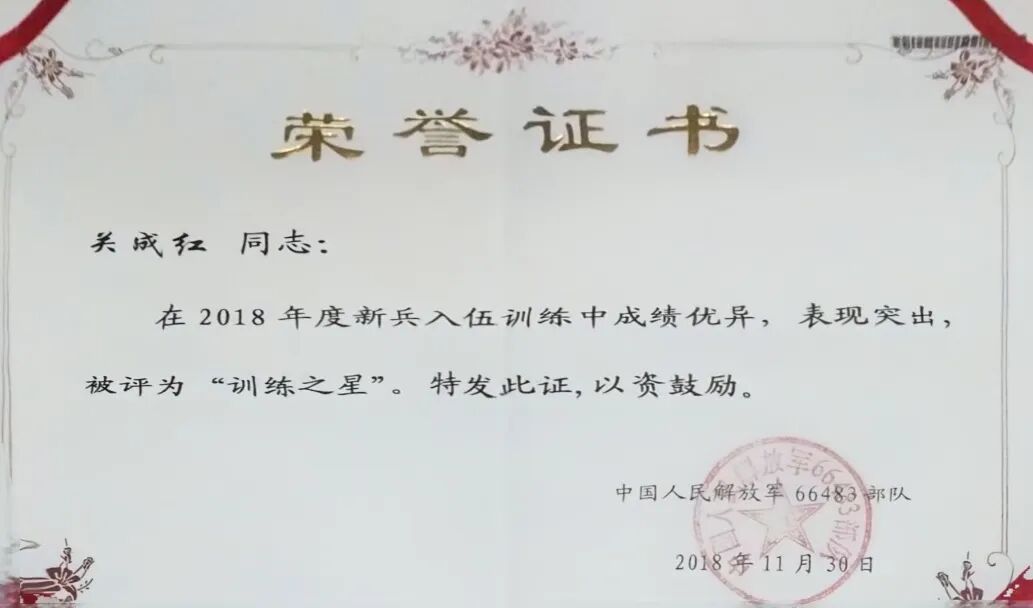 荣誉证书
关成红 同志：
在 2018 年度新兵入伍训练中成绩优异，表现突出，
被评为 “训练之星”。特发此证, 以资鼓励。
中国人民解放军 66483 部队
2018 年 11 月 30 日
中国人民解放军66483部队